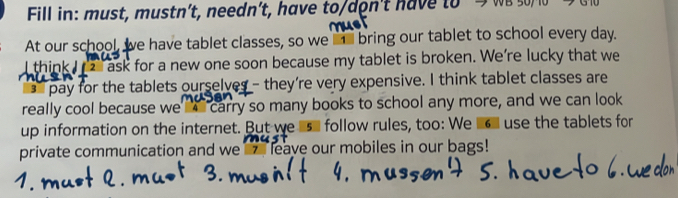 Fill in: must, mustn't, needn't, have to/don't have to → WB 50/10 → G10
must
At our school, we have tablet classes, so we 1 bring our tablet to school every day.
must
I think I 2 ask for a new one soon because my tablet is broken. We're lucky that we
musn't
3 pay for the tablets ourselves – they're very expensive. I think tablet classes are
musen't
really cool because we 4 carry so many books to school any more, and we can look
up information on the internet. But we 5 follow rules, too: We 6 use the tablets for
must
private communication and we 7 leave our mobiles in our bags!
1. must 2. must 3. musn't 4. mussen't 5. have to 6. we don